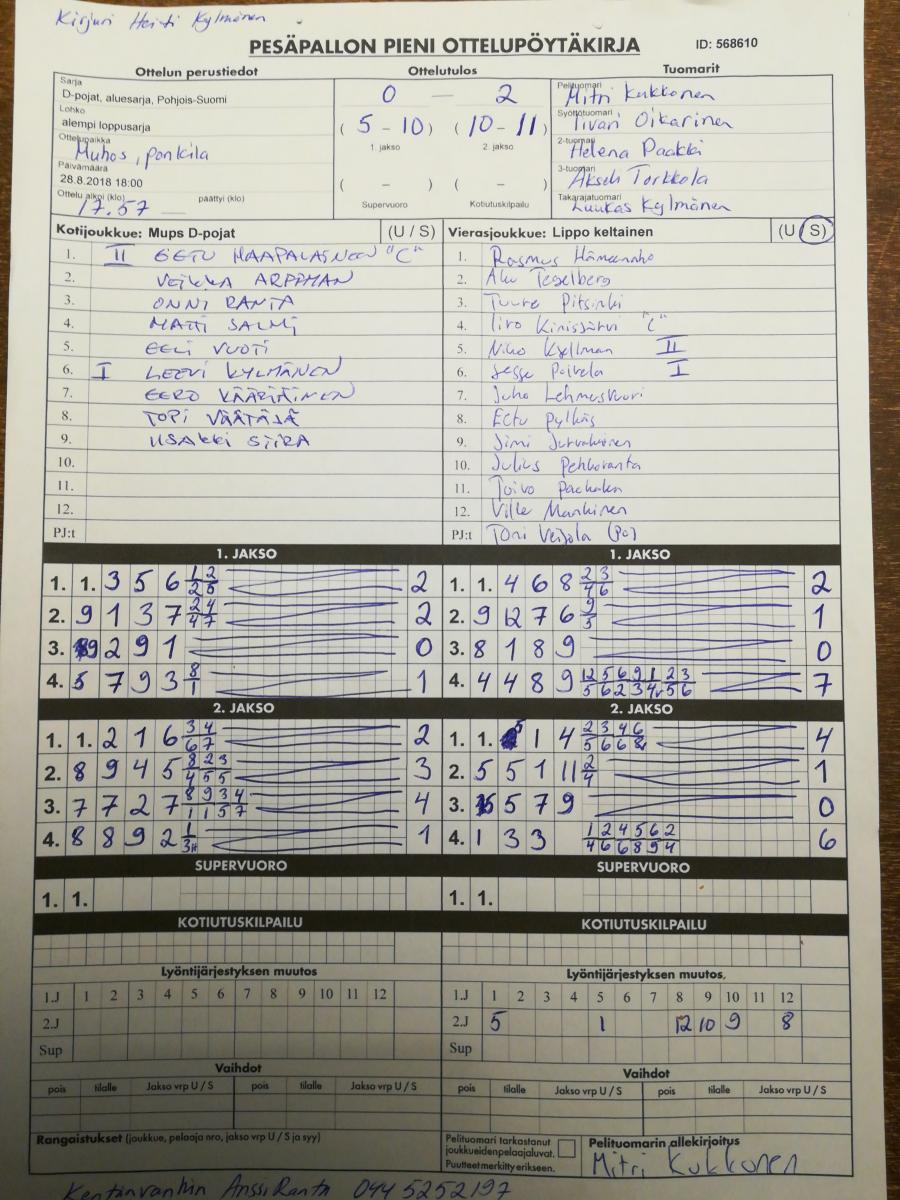 Kirjuri Heidi Kylmänen
PESÄPALLON PIENI OTTELUPÖYTÄKIRJA ID: 568610
Ottelun perustiedot Ottelutulos Tuomarit
Sarja
D-pojat, aluesarja, Pohjois-Suomi
Lohko
alempi loppusarja
Ottelupaikka
Muhos, ponkila
Päivämäärä
28.8.2018 18:00
Ottelu alkoi (klo) päättyi (klo)
17.57
0 — 2
(5 - 10) (10 - 11)
1. jakso 2. jakso
( - ) ( - )
Supervuoro Kotiutuskilpailu
Pelituomari
Mitri Kukkonen
Syöttötuomari
Iivari Oikarinen
2-tuomari
Helena Paakki
3-tuomari
Akseli Torkkola
Takarajatuomari
Luukas Kylmänen
Kotijoukkue: Mups D-pojat (U / S)
1. II EETU HAAPALAINEN "C"
2. VEIKKA ARPPMAN
3. ONNI RANTA
4. MATTI SALMI
5. EELI VUOTI
6. I LEEVI KYLMÄNEN
7. EERO VÄÄRÄINEN
8. TOPI VÄÄTÄJÄ
9. IISAKKI SIIRA
10.
11.
12.
PJ:t
Vierasjoukkue: Lippo keltainen (U/S)
1. Rasmus
2. Aku Tegelberg
3. Tuure
4. Iiro Kinisjärvi "C"
5. Niko Kyllman II
6. Jesse Poivela I
7. Juho Lehmusvuori
8. Eetu Pylkäs
9. Jimi
10. Julius Pehkoranta
11. Toivo
12. Ville Mankinen
PJ:t Toni Veijola (PJ)
1. JAKSO
1. 1. 3 5 6 1/2 2/5 2
2. 9 1 3 7 2/4 4/7 2
3. 9 2 9 1 0
4. 5 7 9 3 8/1 1
1. JAKSO
1. 1. 4 6 8 2/4 3/6 2
2. 9 12 7 6 9/5 1
3. 8 1 8 9 0
4. 4 4 8 9 12/5 5/6 6/2 9/3 1/4 2/5 3/6 7
2. JAKSO
1. 1. 2 1 6 3/6 4/7 2
2. 8 9 4 5 8/4 2/5 3/5 3
3. 7 7 2 7 8/1 9/1 3/5 4/7 4
4. 8 8 9 2 1/3 1
2. JAKSO
1. 1. 5 1 4 2/5 3/6 4/6 6/8 4
2. 5 5 1 11 2/4 1
3. 5 5 7 9 0
4. 1 3 3 1/4 2/6 4/6 5/8 6/9 2/4 6
SUPERVUORO
1. 1.
SUPERVUORO
1. 1.
KOTIUTUSKILPAILU
KOTIUTUSKILPAILU
Lyöntijärjestyksen muutos
1.J 1 2 3 4 5 6 7 8 9 10 11 12
2.J
Sup
Lyöntijärjestyksen muutos
1.J 1 2 3 4 5 6 7 8 9 10 11 12
2.J 5 1 12 10 9 8
Sup
Vaihdot
pois tilalle Jakso vrp U / S pois tilalle Jakso vrp U / S
Vaihdot
pois tilalle Jakso vrp U / S pois tilalle Jakso vrp U / S
Rangaistukset (joukkue, pelaaja nro, jakso vrp U / S ja syy)
Pelituomari tarkastanut
joukkueiden pelaajaluvat.
Puutteet merkitty erikseen.
Pelituomarin allekirjoitus
Mitri Kukkonen
Kentänvanhin Anssi Ranta 044 5252197